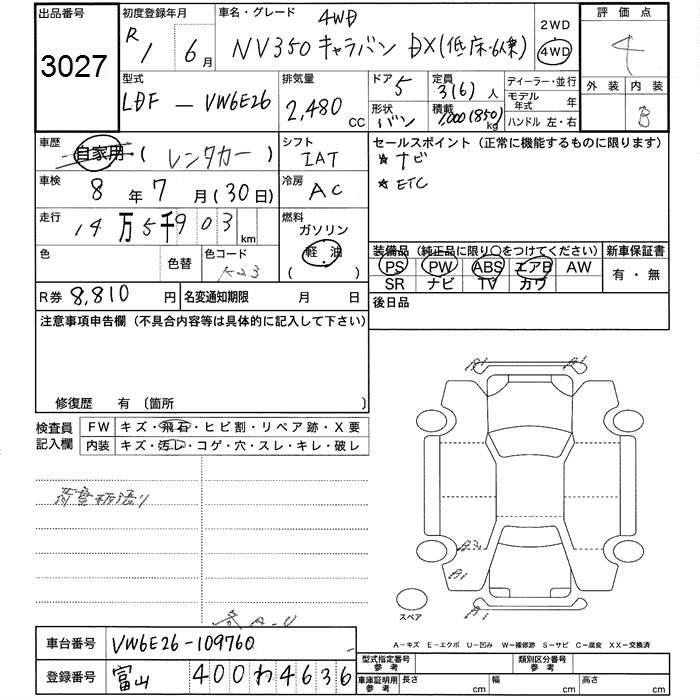 出品番号 初度登録年月 車名・グレード 4WD 2WD 評価点
3027 R1 6月 NV350 キャラバン DX(低床・6人乗) 4WD 4
型式 排気量 ドア 5 定員 3(6)人 ディーラー・並行 外装 内装
LDF － VW6E26 2,480 CC 形状 バン 積載 1,000(850)kg モデル年式 年 B
ハンドル 左・右
車歴 自家用・( レンタカー ) シフト IAT セールスポイント (正常に機能するものに限ります)
★ ナビ
車検 8年 7月(30日) 冷房 AC ★ ETC
走行 14万5千903km 燃料 ガソリン
軽油
( )
色 色替 色コード K23 装備品 (純正品に限り○をつけてください) 新車保証書
PS PW ABS エアB AW 有・無
SR ナビ TV カワ
R券 8,810円 名変通知期限 月 日 後日品
注意事項申告欄 (不具合内容等は具体的に記入して下さい)
修復歴 有 〔箇所 〕
検査員記入欄 FW キズ・飛石・ヒビ割・リペア跡・X要
内装 キズ・汚レ・コゲ・穴・スレ・キレ・破レ
A1
A2
B1
B1
スペア
車台番号 VW6E26-109760
A－キズ E－エクボ U－凹み W－補修跡 S－サビ C－腐食 XX－交換済
登録番号 富山 400 わ 4636
型式指定番号 参考 類別区分番号 参考
車庫証明用 参考 長さ cm 幅 cm 高さ cm